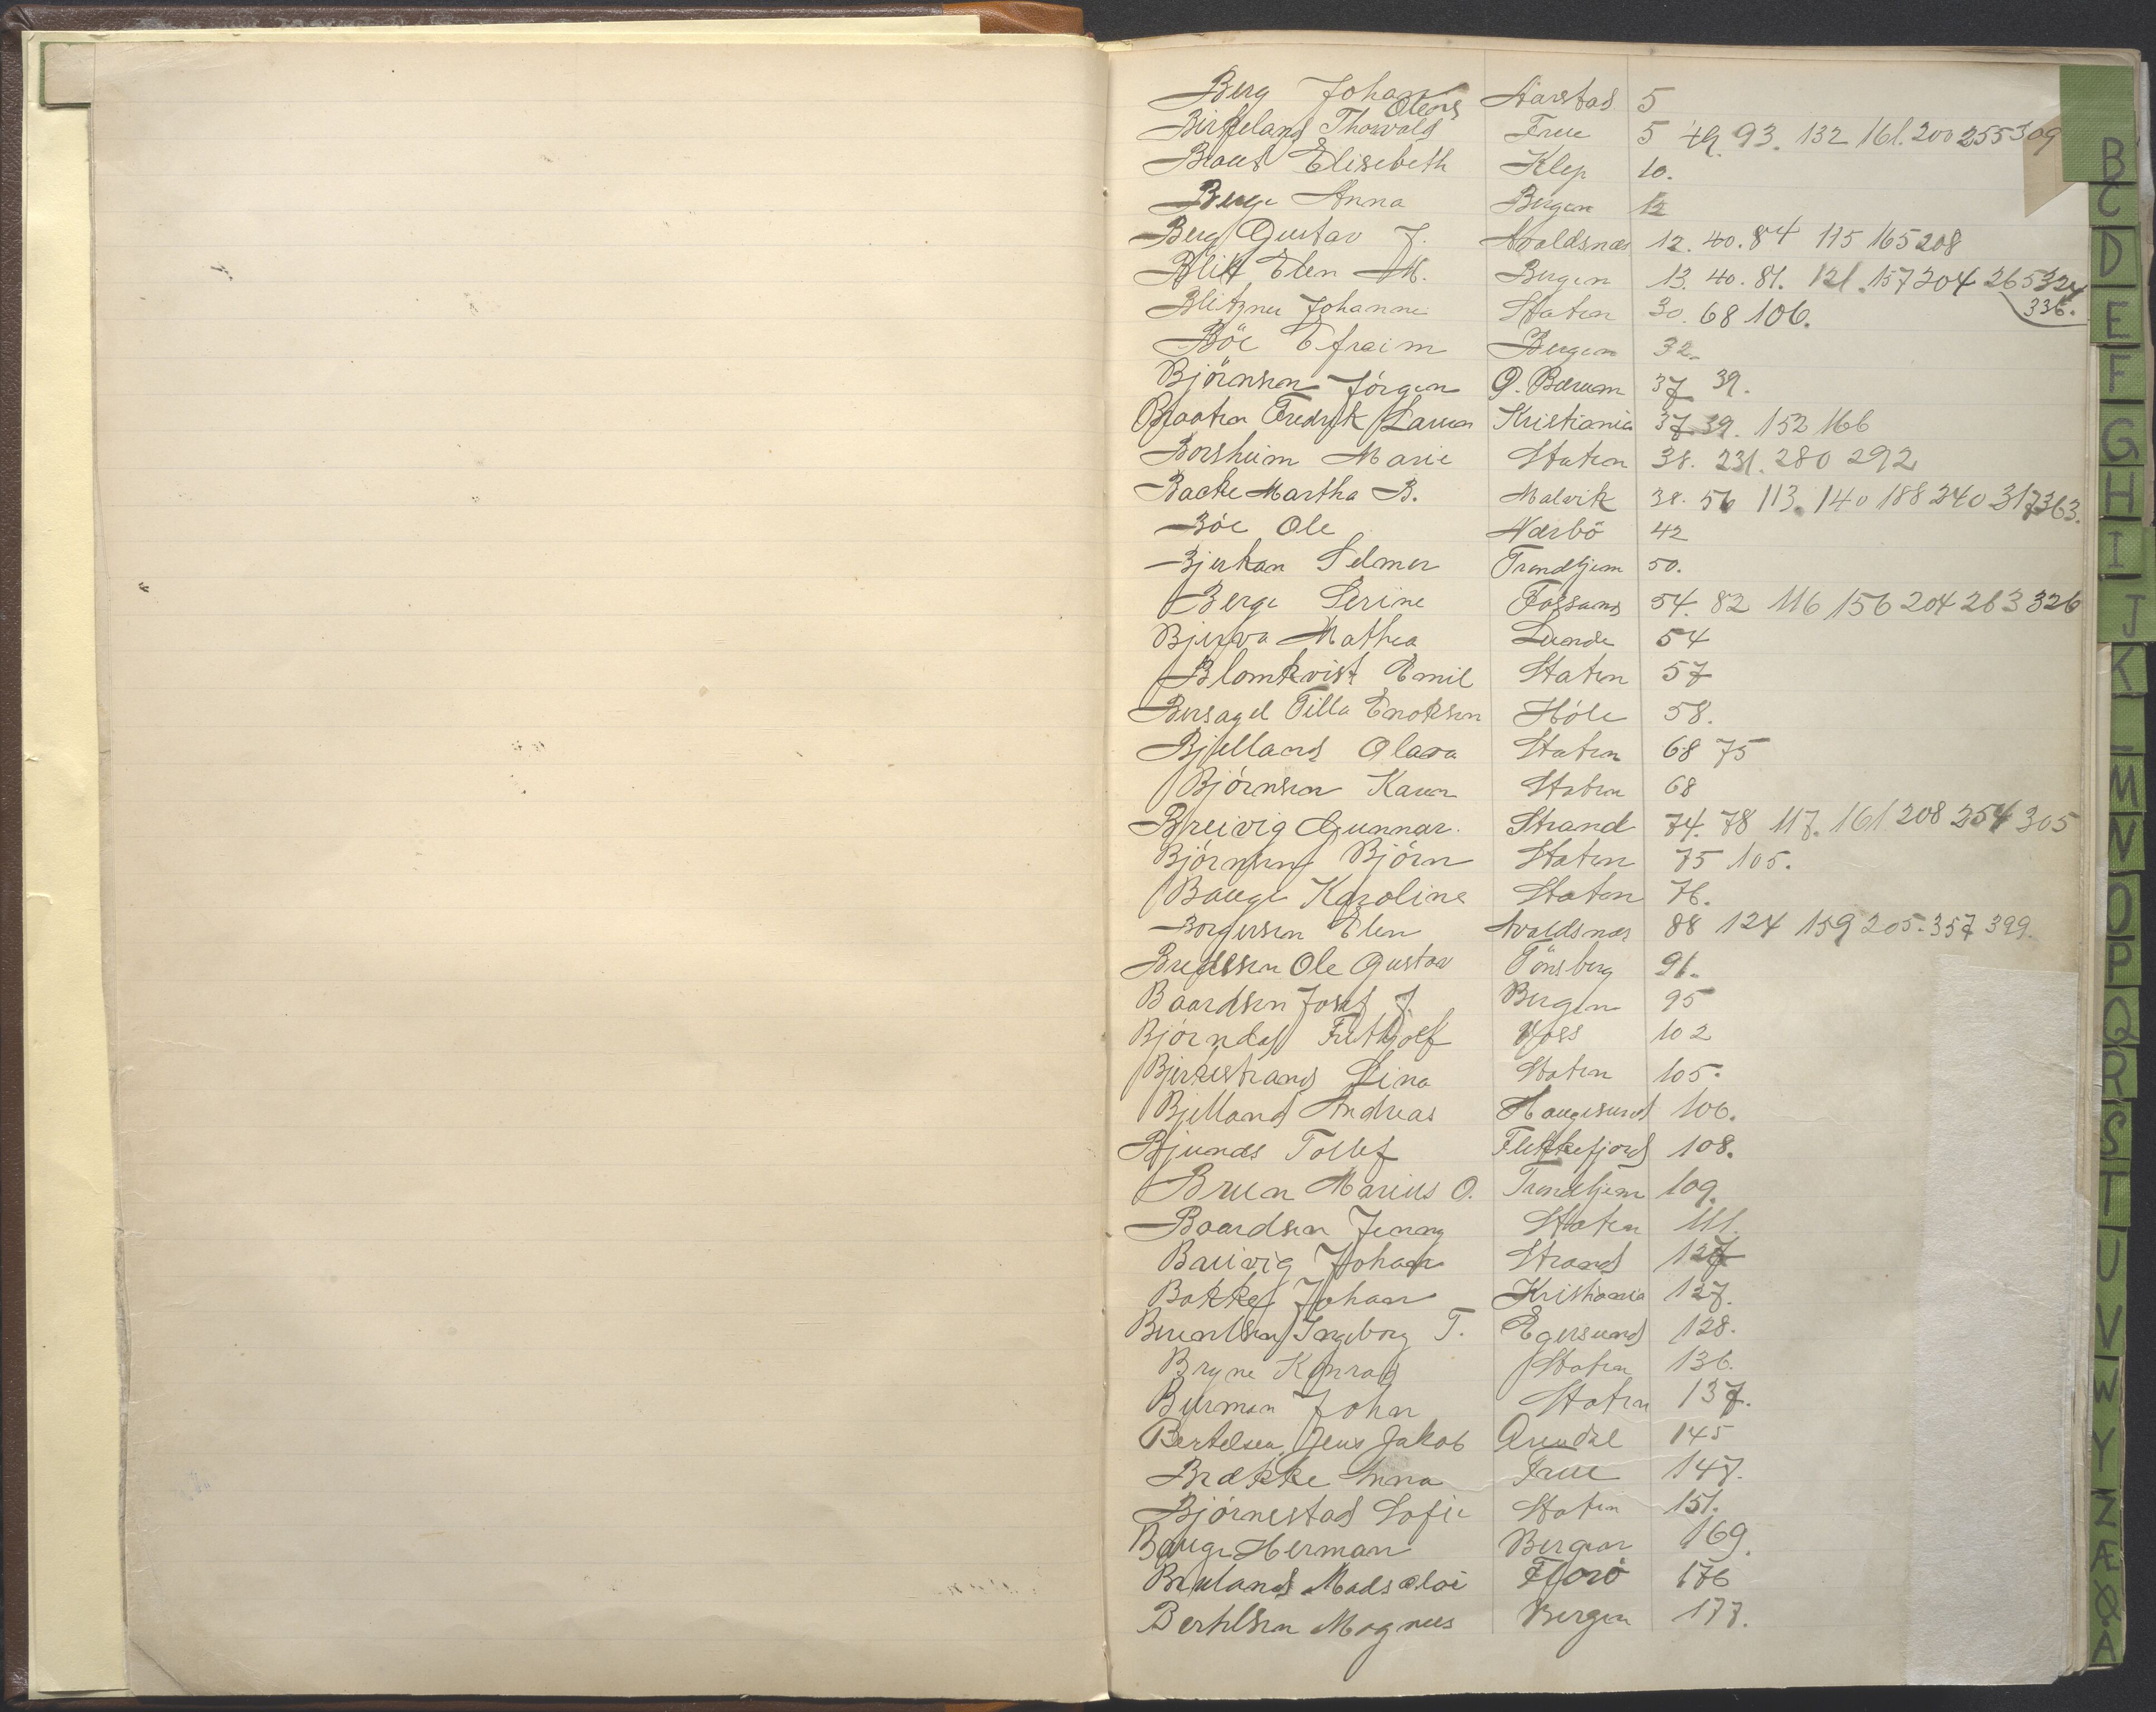 Berg Johan Aarstad 5
Olens
Birkeland Thorvald Frue 5 49. 93. 132 161. 200 255 309
Braut Elisebeth Klep 10.
Berge Anna Bergen 12
Berg Gustav J. Avaldsnes 12. 40. 84 115 165 208
Blix Elen M. Bergen 13. 40. 81. 121. 157 204 265 324
336.
Blitzner Johanne Staten 30. 68 106.
Böe Efraim Bergen 32.
Björnsen Jörgen Ø. Bærum 37 39.
Braaten Fredrik Larsen Kristiania 37. 39. 152 166
Borsheim Marie Staten 38. 231. 280 292
Backe Martha B. Malvik 38. 56 113. 140 188 240 317 363.
Böe Ole Nærbö 42
Bjerkan Selmer Trondhjem 50.
Berge Serine Fossand 54. 82 116 156 204 263 326
Bjerva Mathea Lunde 54
Blomkvist Emil Staten 57
Bersagel Tilla Enoksen Höle 58.
Bjelland Olava Staten 68 75
Björnsen Karen Staten 68
Breivig Gunnar. Strand 74. 78 117. 161 208 254 305
Björnsen Björn Staten 75 105.
Bauge Karoline Staten 76.
Borgersen Elen Avaldsnes 88 124 159 205. 357 399.
Bredesen Ole Gustav Tönsberg 91.
Baardsen Josef J. Bergen 95
Björndal Frithjolf Voss 102
Bjerkestrand Lina Staten 105.
Bjelland Andreas Haugesund 106.
Bjunes Tollef Flekkefjord 108.
Bruen Marius O. Trondhjem 109.
Baardsen Jenny Staten 111.
Breivig Johan Strand 127
Bakke Johan Kristiania 127.
Berentsen Ingeborg T. Egersund 128.
Bryne Konrad Staten 136.
Burman John Staten 137.
Bertelsen, Jens Jakob Arendal 145
Brække Anna Frue 147.
Björnestad Sofie Staten 151.
Bauge Herman Bergen 169.
Breland Mads Florö 176
Bertelsen Magnus Bergen 177.
B
C
D
E
F
G
H
I
J
K
L
M
N
O
P
Q
R
S
T
U
V
W
Y
Z
Æ
Ø
Å